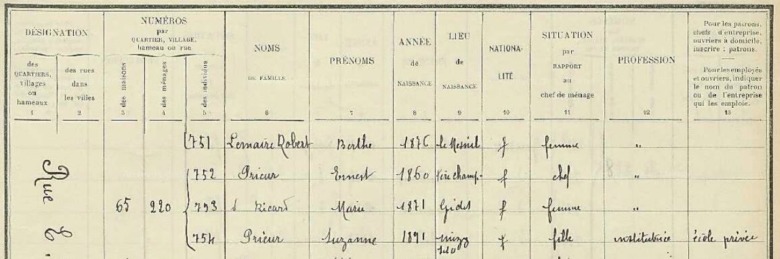 DÉSIGNATION
NUMÉROS
par
QUARTIER, VILLAGE,
hameau ou rue
NOMS
DE FAMILLE
PRÉNOMS
ANNÉE
de
NAISSANCE
LIEU
de
NAISSANCE
NATIONA-
LITÉ
SITUATION
par
RAPPORT
au
chef de ménage
PROFESSION
Pour les patrons,
chefs d'entreprise,
ouvriers à domicile,
inscrire : patron.
Pour les employés
et ouvriers, indiquer
le nom du patron
ou de l'entreprise
qui les emploie.
des
QUARTIERS,
villages
ou
hameaux
des rues
dans
les villes
des maisons
des ménages
des individus
1 2 3 4 5 6 7 8 9 10 11 12 13
751 Lemaire Robert Berthe 1876 le Mesnil f femme "
752 Prieur Ernest 1860 f chef "
65 220 753 Ricard Marie 1871 f femme "
754 Prieur Suzanne 1891 f fille institutrice école privée
Rue